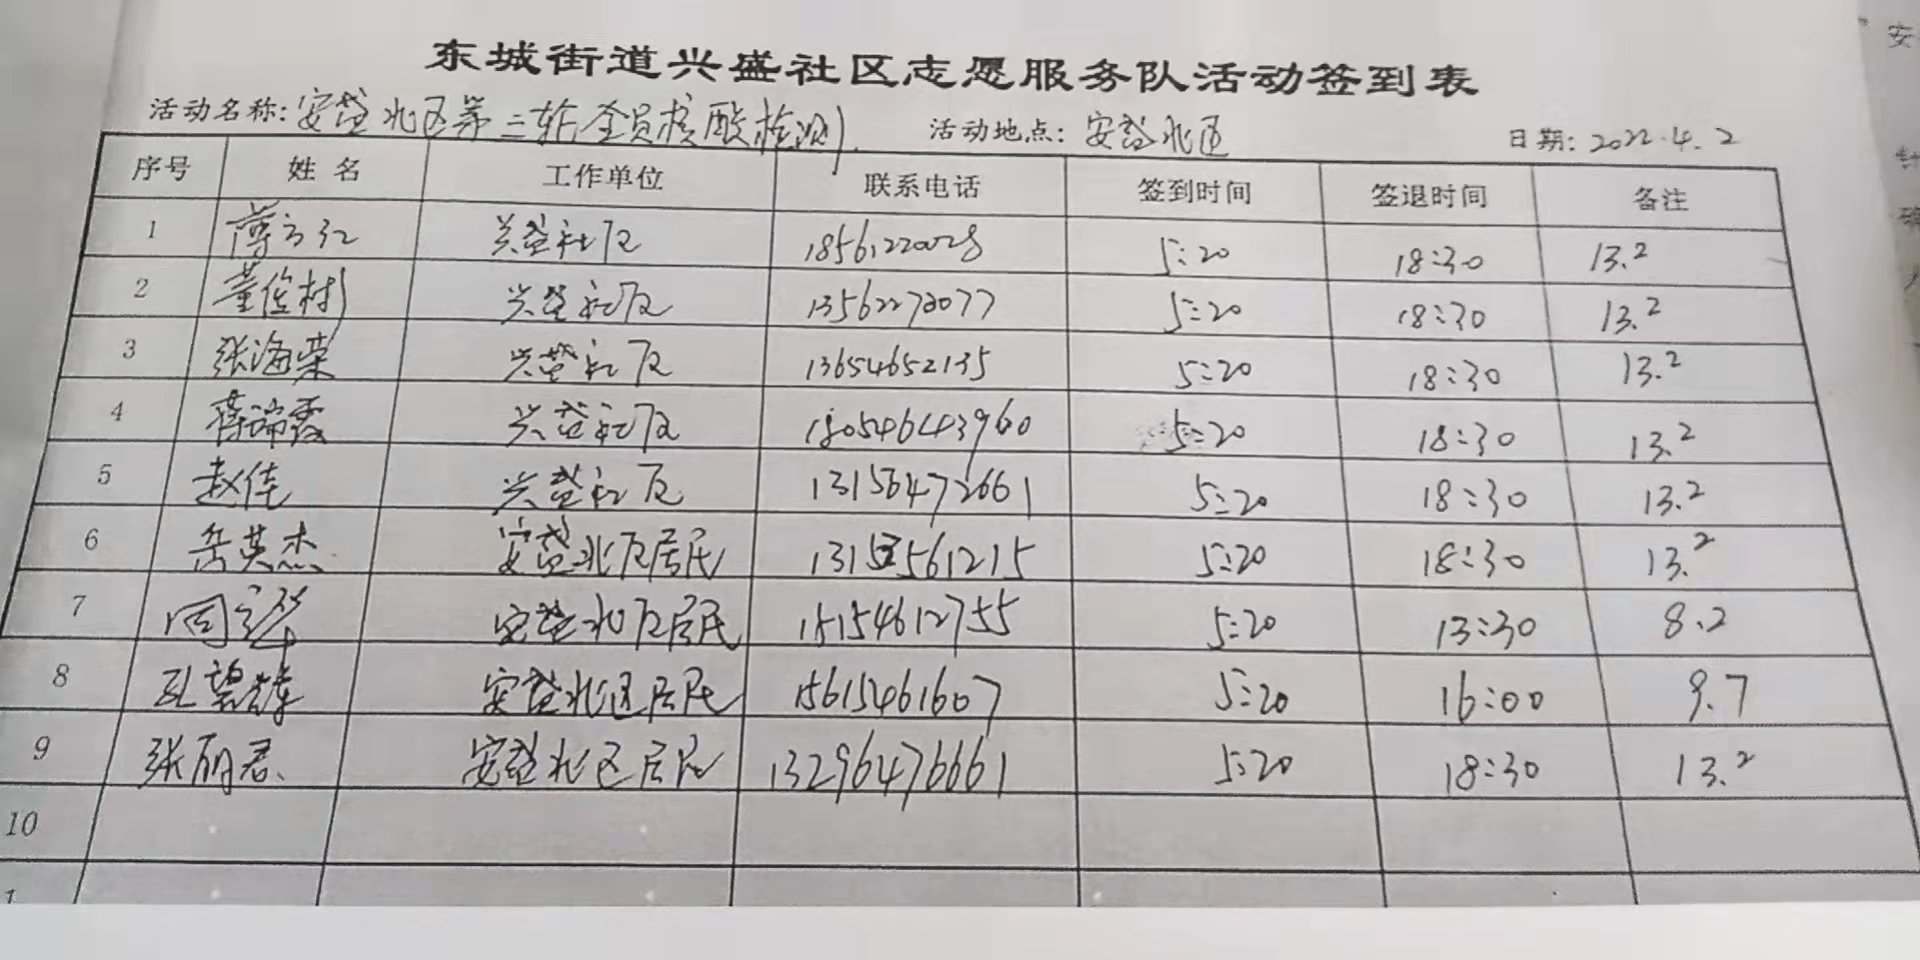 东城街道兴盛社区志愿服务队活动签到表
活动名称: 安盛北区第二轮全员核酸检测 活动地点: 安盛北区 日期: 2022.4.2
序号 姓名 工作单位 联系电话 签到时间 签退时间 备注
1 兴盛社区 18561220028 5:20 18:30 13.2
2 董俊树 兴盛社区 13562272077 5:20 18:30 13.2
3 张海荣 兴盛社区 13654652135 5:20 18:30 13.2
4 蒋瑞霞 兴盛社区 18054643960 5:20 18:30 13.2
5 赵佳 兴盛社区 13156472661 5:20 18:30 13.2
6 岳英杰 安盛北区居民 5:20 18:30 13.2
7 安盛北区居民 15154612755 5:20 13:30 8.2
8 安盛北区居民 15615461607 5:20 16:00 9.7
9 张丽君 安盛北区居民 13296476661 5:20 18:30 13.2
10
安